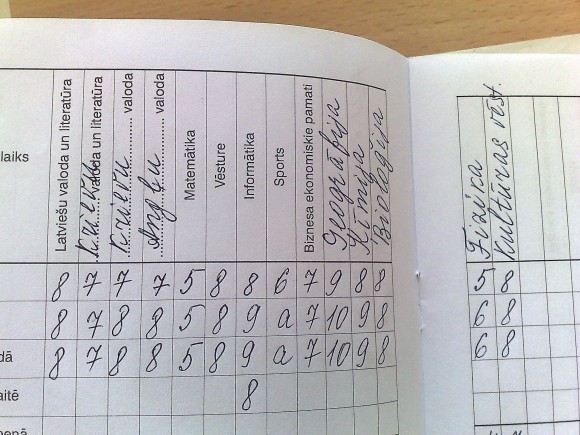 laiks
Latviešu valoda un literatūra
Krievu valoda un literatūra
Krievu valoda
Angļu valoda
Matemātika
Vēsture
Informātika
Sports
Biznesa ekonomiskie pamati
Ģeogrāfija
Ķīmija
Bioloģija
Fizika
Kultūras vēst.
8 7 7 7 5 8 8 6 7 9 8 8 5 8
8 7 8 8 5 8 9 a 7 10 9 8 6 8
dā 8 7 8 8 5 8 9 a 7 10 9 8 6 8
aitē 8